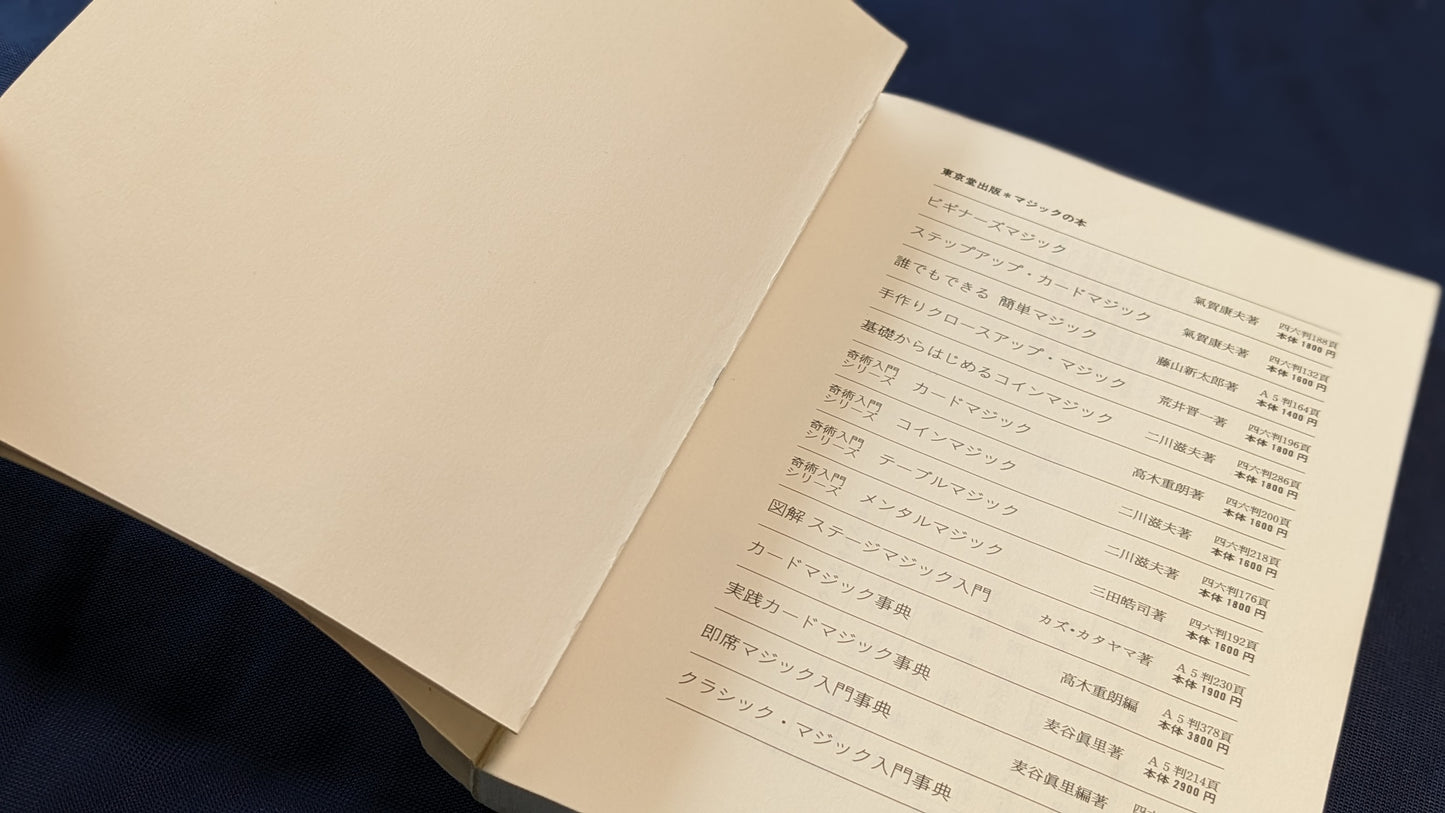 東京堂出版＊マジックの本
ビギナーズマジック 氣賀康夫著 四六判188頁 本体1800円
ステップアップ・カードマジック 氣賀康夫著 四六判132頁 本体1600円
誰でもできる 簡単マジック 藤山新太郎著 A5判164頁 本体1400円
手作りクロースアップ・マジック 荒井晋一著 四六判196頁 本体1800円
基礎からはじめるコインマジック 二川滋夫著 四六判286頁 本体1800円
奇術入門シリーズ カードマジック 高木重朗著 四六判200頁 本体1600円
奇術入門シリーズ コインマジック 二川滋夫著 四六判218頁 本体1600円
奇術入門シリーズ テーブルマジック 二川滋夫著 四六判176頁 本体1800円
奇術入門シリーズ メンタルマジック 三田皓司著 四六判192頁 本体1600円
図解 ステージマジック入門 カズ・カタヤマ著 A5判230頁 本体1900円
カードマジック事典 高木重朗編 A5判378頁 本体3800円
実践カードマジック事典 麦谷眞里著 A5判214頁 本体2900円
即席マジック入門事典 麦谷眞里編著 四六
クラシック・マジック入門事典